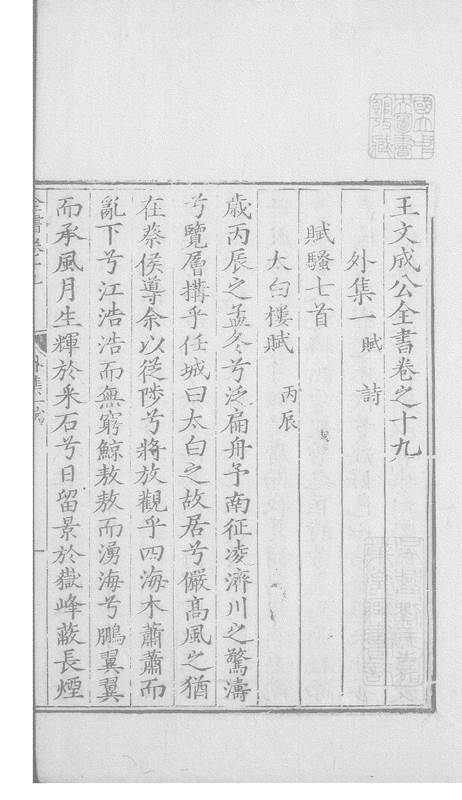 王文成公全書卷之十九
外集一 賦 詩
賦騷七首
太白樓賦 丙辰
歲丙辰之孟冬兮泛扁舟予南征凌濟川之驚濤
兮覽層搆乎任城曰太白之故居兮儼高風之猶
在蔡侯導余以從陟兮將放觀乎四海木蕭蕭而
亂下兮江浩浩而無窮鯨敖敖而湧海兮鵬翼翼
而承風月生輝於采石兮日留景於嶽峰蔽長煙